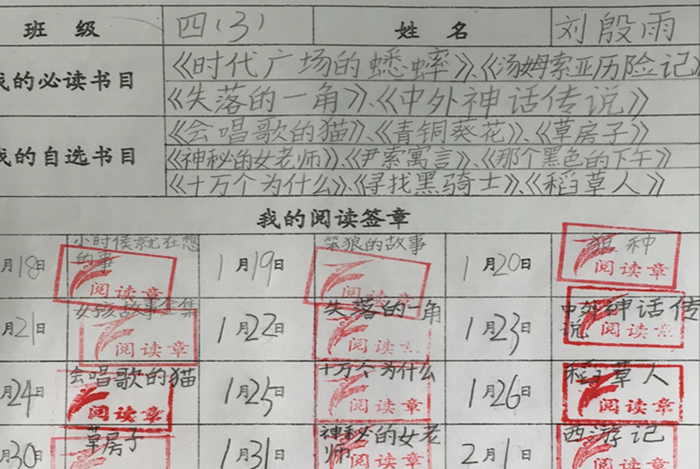 班级 四(3) 姓名 刘殷雨
我的必读书目 《时代广场的蟋蟀》、《汤姆索亚历险记》
《失落的一角》、《中外神话传说》
我的自选书目 《会唱歌的猫》、《青铜葵花》、《草房子》
《神秘的女老师》、《尹索寓言》、《那个黑色的下午》
《十万个为什么》、《寻找黑骑士》、《稻草人》
我的阅读签章
月18日 小时侯就在想的事 阅读章 1月19日 笨狼的故事 阅读章 1月20日 狼种 阅读章
月21日 女孩故事全集 阅读章 1月22日 失落的一角 阅读章 1月23日 中外神话传说 阅读章
月24日 会唱歌的猫 阅读章 1月25日 十万个为什么 阅读章 1月26日 稻草人 阅读章
月30日 草房子 1月31日 神秘的女老师 2月1日 西游记